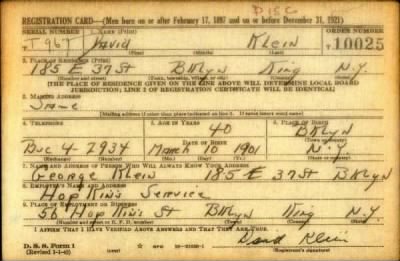 DISC
REGISTRATION CARD—(Men born on or after February 17, 1897 and on or before December 31, 1921)
SERIAL NUMBER 1. NAME (Print) ORDER NUMBER
T 967 David Klein 10025
(First) (Middle) (Last)
2. PLACE OF RESIDENCE (Print)
185 E 37 St BKlyn King N.Y.
(Number and street) (Town, township, village, or city) (County) (State)
[THE PLACE OF RESIDENCE GIVEN ON THE LINE ABOVE WILL DETERMINE LOCAL BOARD
JURISDICTION; LINE 2 OF REGISTRATION CERTIFICATE WILL BE IDENTICAL]
3. MAILING ADDRESS
Same
(Mailing address if other than place indicated on line 2. If same insert word same)
4. TELEPHONE 5. AGE IN YEARS 6. PLACE OF BIRTH
40 BKlyn
DATE OF BIRTH
Buc 4-2934 March 10 1901 N.Y.
7. NAME AND ADDRESS OF PERSON WHO WILL ALWAYS KNOW YOUR ADDRESS
George Klein 185 E 37 St BKlyn
8. EMPLOYER'S NAME AND ADDRESS
Hopkins Service
9. PLACE OF EMPLOYMENT OR BUSINESS
56 Hopkins St BKlyn King N.Y.
(Number and street or R. F. D. number) (Town) (County) (State)
I AFFIRM THAT I HAVE VERIFIED ABOVE ANSWERS AND THAT THEY ARE TRUE.
D. S. S. Form 1
David Klein